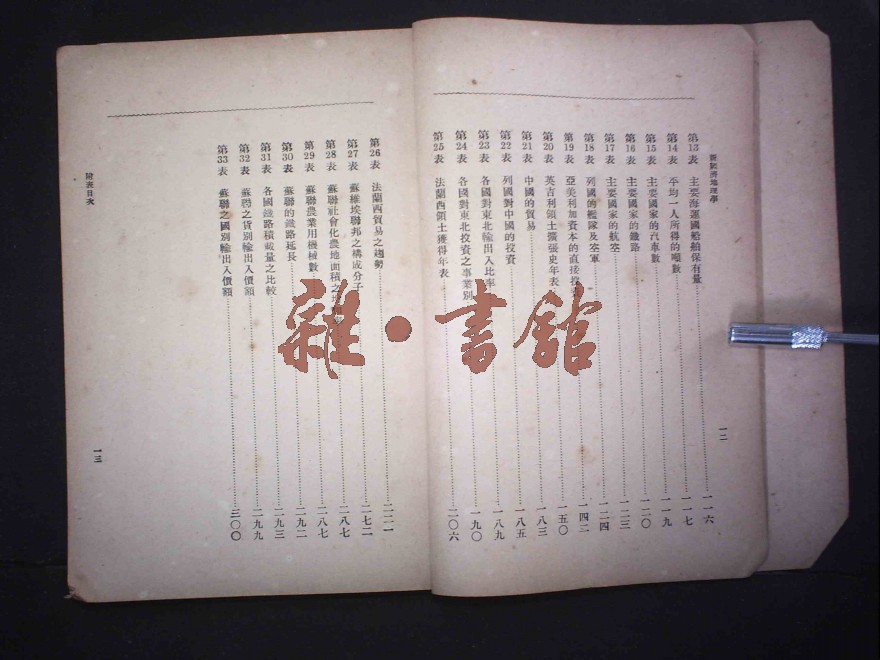 新經濟地理學
第13表 主要海運國船舶保有量 一一六
第14表 平均一人所得的噸數 一一七
第15表 主要國家的汽車數 一一九
第16表 主要國家的鐵路 一二〇
第17表 主要國家的航空 一二三
第18表 列國的艦隊及空軍 一二四
第19表 亞美利加資本的直接投 一四二
第20表 英吉利領土擴張史年表 一五〇
第21表 中國的貿易 一八三
第22表 列國對中國的投資 一八五
第23表 各國對東北輸出入比率 一八九
第24表 各國對東北投資之事業別 一九〇
第25表 法蘭西領土獲得年表 二〇六
一二
第26表 法蘭西貿易之趨勢 二二一
第27表 蘇維埃聯邦之構成分子 二七二
第28表 蘇聯社會化農地面積之 二八七
第29表 蘇聯農業用機械數 二八七
第30表 蘇聯的鐵路延長 二九二
第31表 各國鐵路積載量之比較 二九三
第32表 蘇聯之貨別輸出入價額 二九九
第33表 蘇聯之國別輸出入價額 三〇〇
附表目次
一三
雜·書館